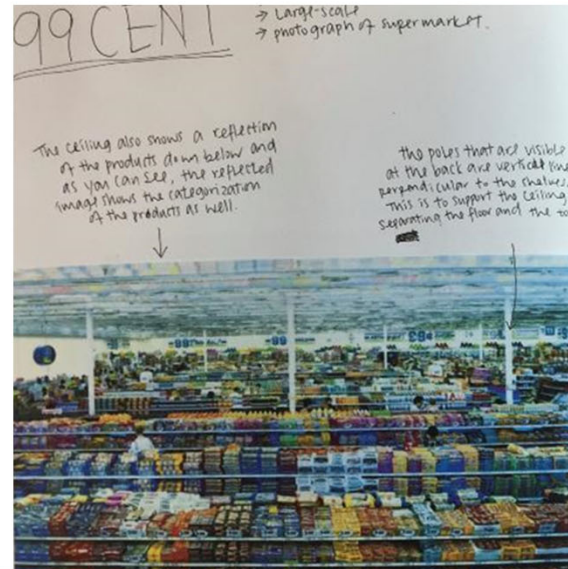 99 CENT
→ Large-scale
→ photograph of supermarket.
The ceiling also shows a reflection
of the products down below and
as you can see, the reflected
image shows the categorization
of the products as well.
the poles that are visible
at the back are vertical line
perpendicular to the shelves.
This is to support the ceiling
separating the floor and the